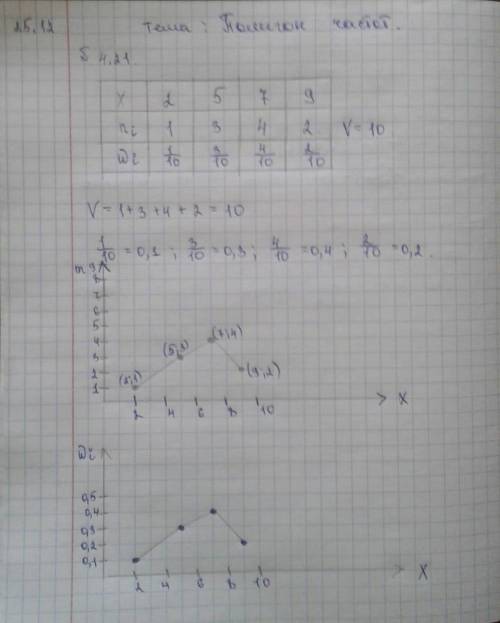 25.12 Тема: Полигон частот.
б 4.21.
X 2 5 7 9
ni 1 3 4 2 V=10
Wi 1/10 3/10 4/10 2/10
V = 1+3+4+2 = 10
1/10 = 0,1 ; 3/10 = 0,3 ; 4/10 = 0,4 ; 2/10 = 0,2 .
n 9
8
7
6
5
4 (7;4)
3 (5;3)
2 (9;2)
1 (2;1)
2 4 6 8 10 X
Wi
0,5
0,4
0,3
0,2
0,1
2 4 6 8 10 X